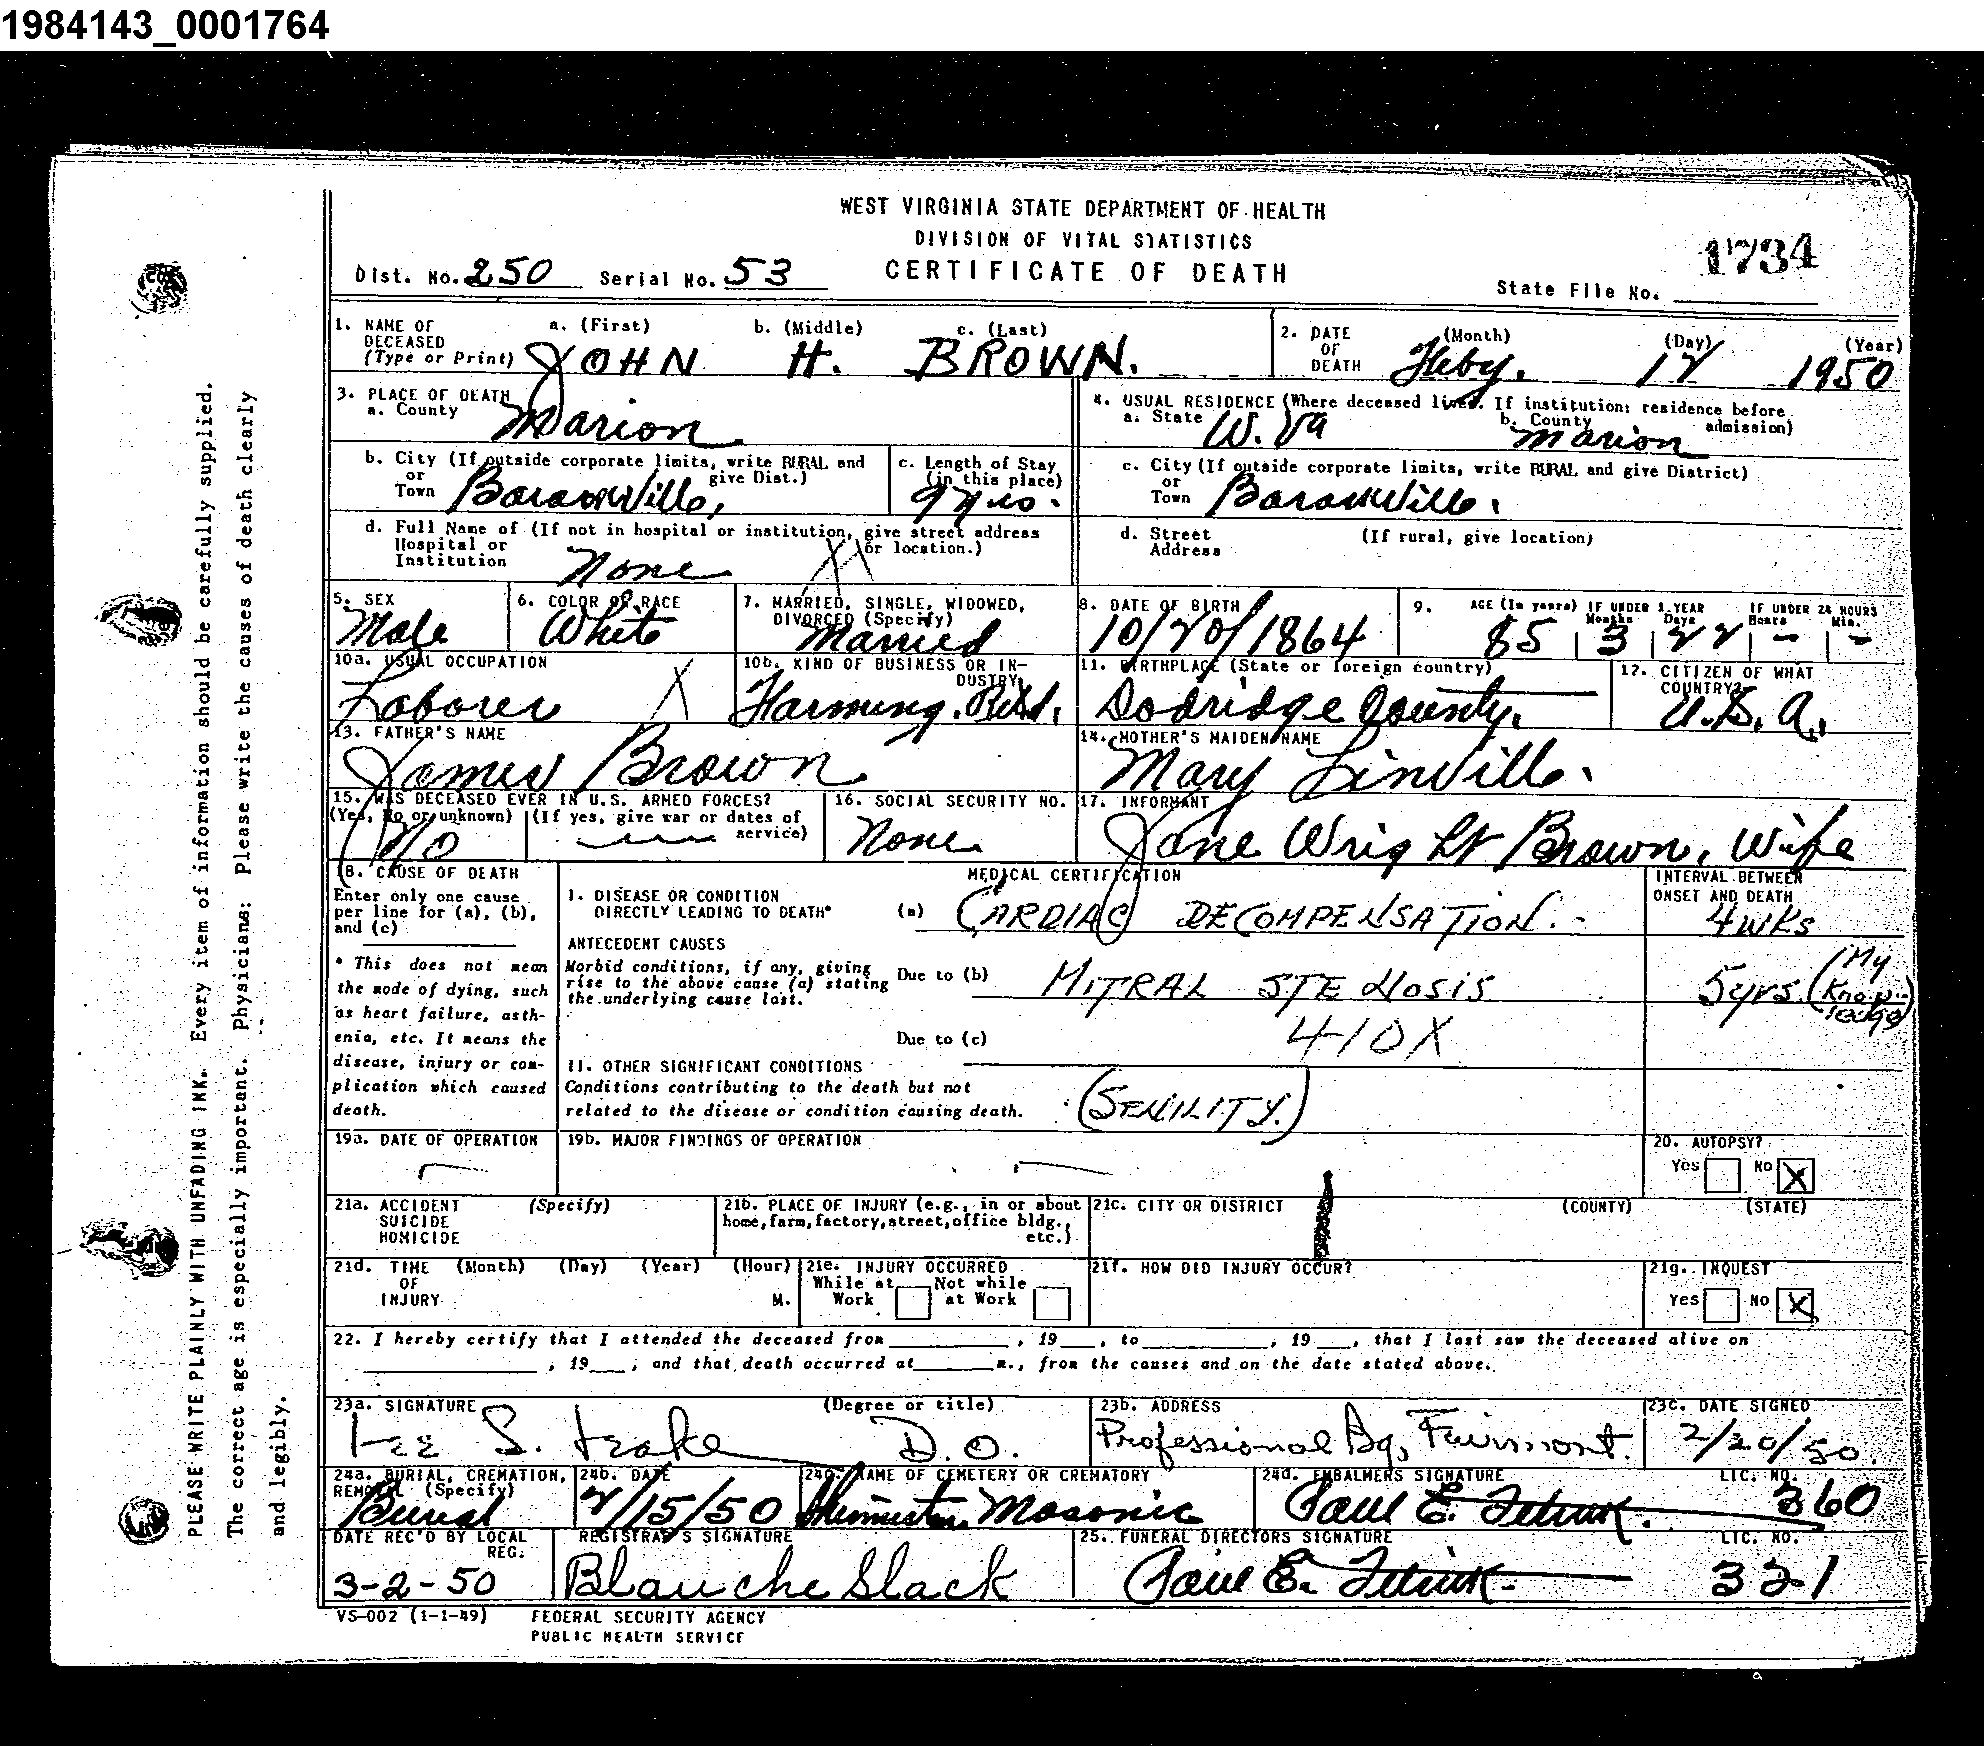 1984143_0001764
WEST VIRGINIA STATE DEPARTMENT OF HEALTH
DIVISION OF VITAL STATISTICS
1734
Dist. No. 250 Serial No. 53 CERTIFICATE OF DEATH
State File No.
1. NAME OF DECEASED (Type or Print)
a. (First) b. (Middle) c. (Last)
JOHN H. BROWN.
2. DATE OF DEATH
(Month) (Day) (Year)
Feby. 12 1950
3. PLACE OF DEATH
a. County
Marion
4. USUAL RESIDENCE (Where deceased lived. If institution: residence before admission)
a. State W. Va b. County Marion
b. City (If outside corporate limits, write RURAL and give Dist.)
or
Town Barackville,
c. Length of Stay (in this place)
9 yrs.
c. City (If outside corporate limits, write RURAL and give District)
or
Town Barackville.
d. Full Name of (If not in hospital or institution, give street address or location.)
Hospital or
Institution None
d. Street Address (If rural, give location)
5. SEX
Male
6. COLOR OR RACE
White
7. MARRIED, SINGLE, WIDOWED, DIVORCED (Specify)
Married
8. DATE OF BIRTH
10/20/1864
9. AGE (In years) IF UNDER 1 YEAR IF UNDER 24 HOURS
Months Days Hours Min.
85 3 22 - -
10a. USUAL OCCUPATION
Laborer X
10b. KIND OF BUSINESS OR INDUSTRY
Farming. Retd.
11. BIRTHPLACE (State or foreign country)
Dodridge County.
12. CITIZEN OF WHAT COUNTRY?
U.S.A.
13. FATHER'S NAME
James Brown
14. MOTHER'S MAIDEN NAME
Mary Linville.
15. WAS DECEASED EVER IN U.S. ARMED FORCES?
(Yes, no or unknown) (If yes, give war or dates of service)
No
16. SOCIAL SECURITY NO.
None
17. INFORMANT
Jane Wright Brown, Wife
18. CAUSE OF DEATH
Enter only one cause per line for (a), (b), and (c)
* This does not mean the mode of dying, such as heart failure, asthenia, etc. It means the disease, injury or complication which caused death.
MEDICAL CERTIFICATION
INTERVAL BETWEEN ONSET AND DEATH
I. DISEASE OR CONDITION DIRECTLY LEADING TO DEATH*
(a) CARDIAC DECOMPENSATION.- 4 wks
ANTECEDENT CAUSES
Morbid conditions, if any, giving rise to the above cause (a) stating the underlying cause last.
Due to (b) MITRAL STENOSIS 5 yrs. (My Knowledge)
Due to (c) 410X
II. OTHER SIGNIFICANT CONDITIONS
Conditions contributing to the death but not related to the disease or condition causing death.
(SENILITY.)
19a. DATE OF OPERATION
19b. MAJOR FINDINGS OF OPERATION
20. AUTOPSY?
Yes No X
21a. ACCIDENT SUICIDE HOMICIDE (Specify)
21b. PLACE OF INJURY (e.g., in or about home, farm, factory, street, office bldg., etc.)
21c. CITY OR DISTRICT (COUNTY) (STATE)
21d. TIME OF INJURY (Month) (Day) (Year) (Hour) M.
21e. INJURY OCCURRED
While at Work Not while at Work
21f. HOW DID INJURY OCCUR?
21g. INQUEST
Yes No X
22. I hereby certify that I attended the deceased from , 19 , to , 19 , that I last saw the deceased alive on
, 19 , and that death occurred at m., from the causes and on the date stated above.
23a. SIGNATURE (Degree or title)
Lee S. D.O.
23b. ADDRESS
Professional Bg, Fairmont.
23c. DATE SIGNED
2/20/50.
24a. BURIAL, CREMATION, REMOVAL (Specify)
Burial
24b. DATE
2/15/50
24c. NAME OF CEMETERY OR CREMATORY
Masonic
24d. EMBALMERS SIGNATURE LIC. NO.
Paul E. 360
DATE REC'D BY LOCAL REG.
3-2-50
REGISTRAR'S SIGNATURE
Blanche Slack
25. FUNERAL DIRECTORS SIGNATURE LIC. NO.
Paul E. 321
VS-002 (1-1-49) FEDERAL SECURITY AGENCY
PUBLIC HEALTH SERVICE
PLEASE WRITE PLAINLY WITH UNFADING INK. Every item of information should be carefully supplied.
The correct age is especially important. Physicians: Please write the causes of death clearly
and legibly.